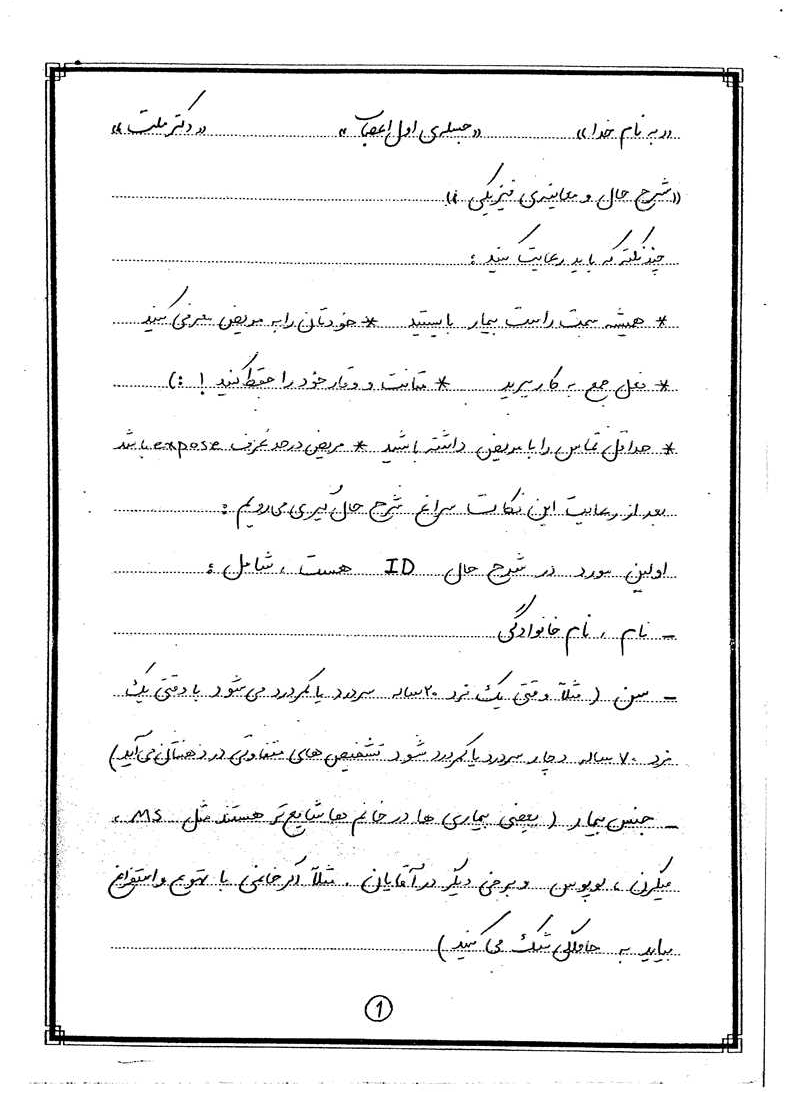 «به نام خدا» «جلسه‌ی اول اعصاب» «دکتر ملت»
«شرح حال و معاینه‌ی فیزیکی»
چند نکته که باید رعایت کنید :
* همیشه سمت راست بیمار بایستید * خودتان را به مریض معرفی کنید
* فعل جمع به کار ببرید * متانت و وقار خود را حفظ کنید ! :)
* حداقل تماس را با مریض داشته باشید * مریض در حد عُرف expose باشد
بعد از رعایت این نکات سراغ شرح حال گیری می رویم :
اولین مورد در شرح حال ID هست ، شامل :
- نام ، نام خانوادگی
- سن ( مثلاً وقتی یک فرد ۲۰ ساله سردرد یا کمردرد می شود با وقتی یک
فرد ۷۰ ساله دچار سردرد یا کمردرد شود تشخیص های متفاوتی در ذهنتان می آید)
- جنس بیمار ( بعضی بیماری ها در خانم ها شایع تر هستند مثل MS ،
میگرن ، لوپوس و برخی دیگر در آقایان . مثلاً اگر خانمی با تهوع و استفراغ
بیاید به حاملگی شک می کنید )
1